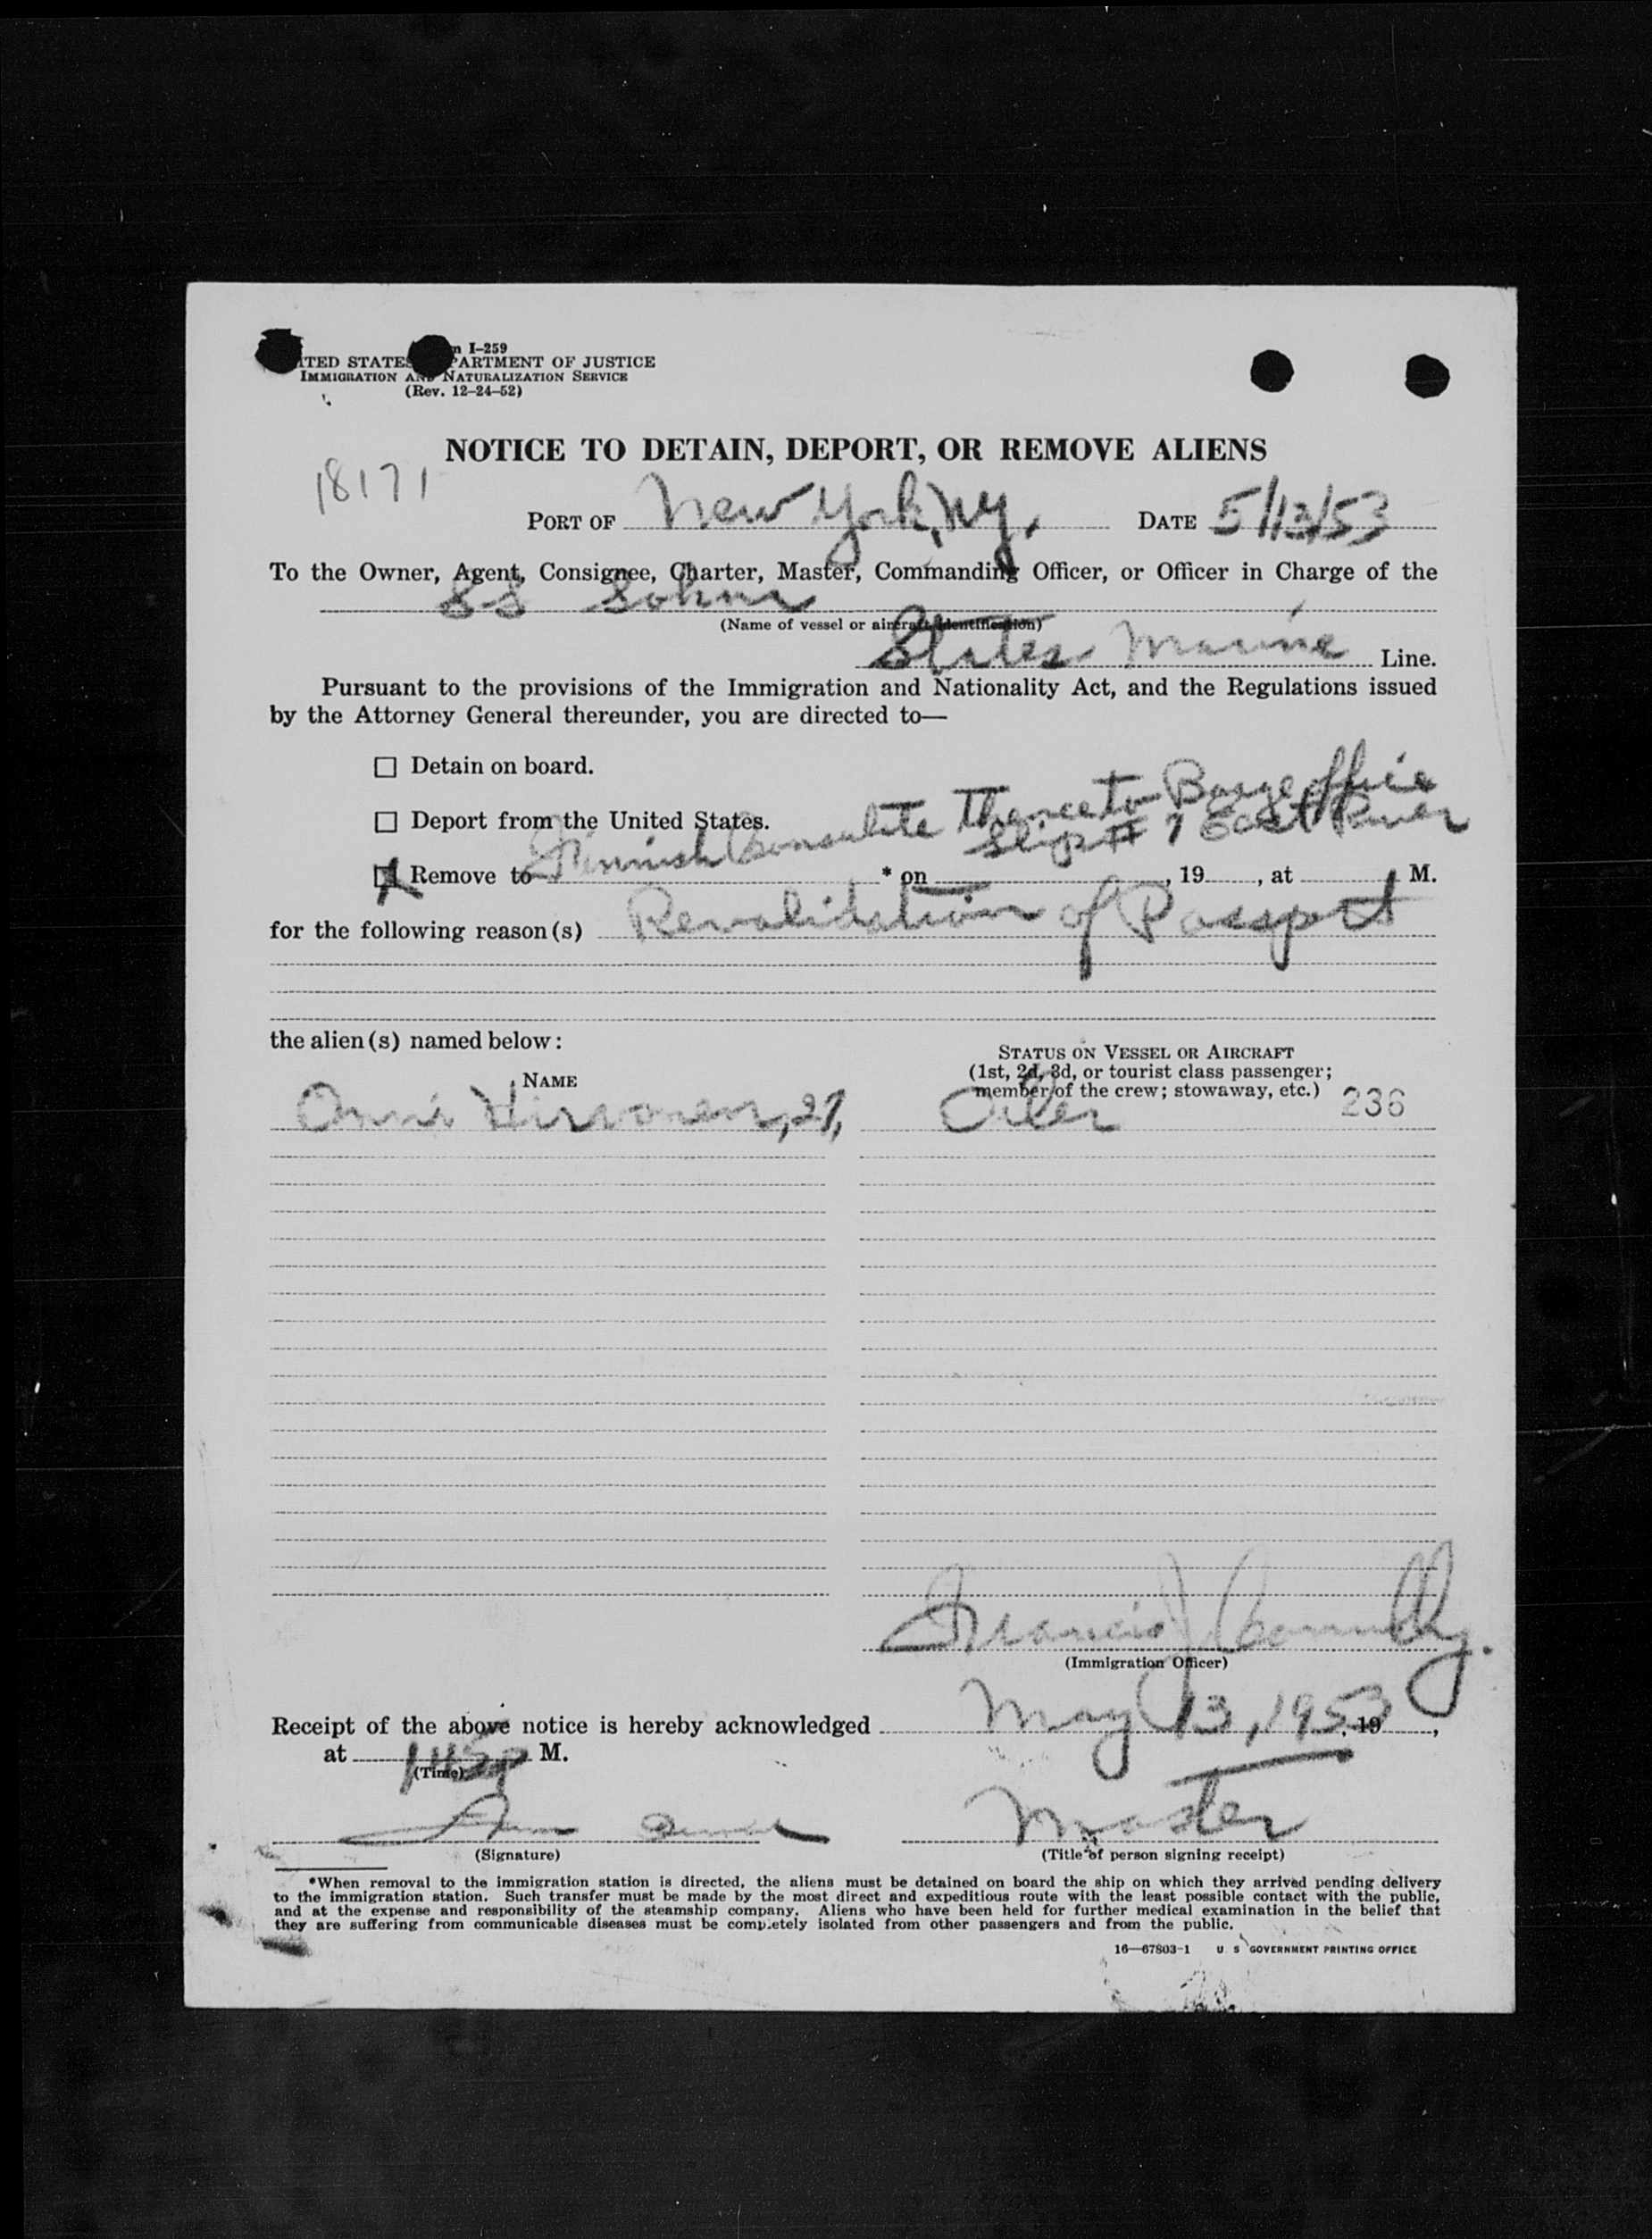 I-259
STATES DEPARTMENT OF JUSTICE
IMMIGRATION AND NATURALIZATION SERVICE
(Rev. 12-24-52)
NOTICE TO DETAIN, DEPORT, OR REMOVE ALIENS
18171
PORT OF New York, NY. DATE 5/13/53
To the Owner, Agent, Consignee, Charter, Master, Commanding Officer, or Officer in Charge of the
SS
(Name of vessel or aircraft identification)
States Marine Line.
Pursuant to the provisions of the Immigration and Nationality Act, and the Regulations issued
by the Attorney General thereunder, you are directed to—
☐ Detain on board.
☐ Deport from the United States.
Thence to Barge office
Slip # 7 East River
☒ Remove to Finnish Consulate * on , 19 , at M.
for the following reason(s) Revalidation of Passport
the alien(s) named below:
NAME
STATUS ON VESSEL OR AIRCRAFT
(1st, 2d, 3d, or tourist class passenger;
member of the crew; stowaway, etc.) 236
Onni Hirvonen, 27, Oiler
Francis J. Connolly.
(Immigration Officer)
Receipt of the above notice is hereby acknowledged May 13, 1953, 19 ,
at 145p M.
(Time)
Master
(Signature) (Title of person signing receipt)
*When removal to the immigration station is directed, the aliens must be detained on board the ship on which they arrived pending delivery
to the immigration station. Such transfer must be made by the most direct and expeditious route with the least possible contact with the public,
and at the expense and responsibility of the steamship company. Aliens who have been held for further medical examination in the belief that
they are suffering from communicable diseases must be completely isolated from other passengers and from the public.
16—67803-1 U S GOVERNMENT PRINTING OFFICE